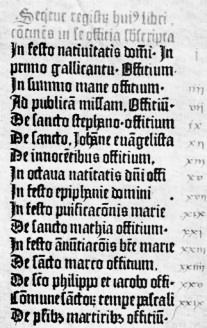 Sequitur registrū huiꝰ libri
cōtinēs in se officia subscripta
In festo natiuitatis dōmi. In
primo gallicantu. Officium. i
In summo mane officium. iii
Ad publicā missam. Officiū. v
De sancto stephano. officium vi
De sancto. Johāne euāgelista
De innocētibus officium.
In octaua natitatis dn̄i offi
In festo epiphanie domini
In festo puificaconis marie xix
De sancto mathia officium. xxi
In festo ānūciacōis bt̄e marie xxiii
De sancto marco officium.
De scō philippo et iacobo offi.
Cōmune sanctoꝝ tempe pascali
De pluribꝫ martiribꝫ officiū.